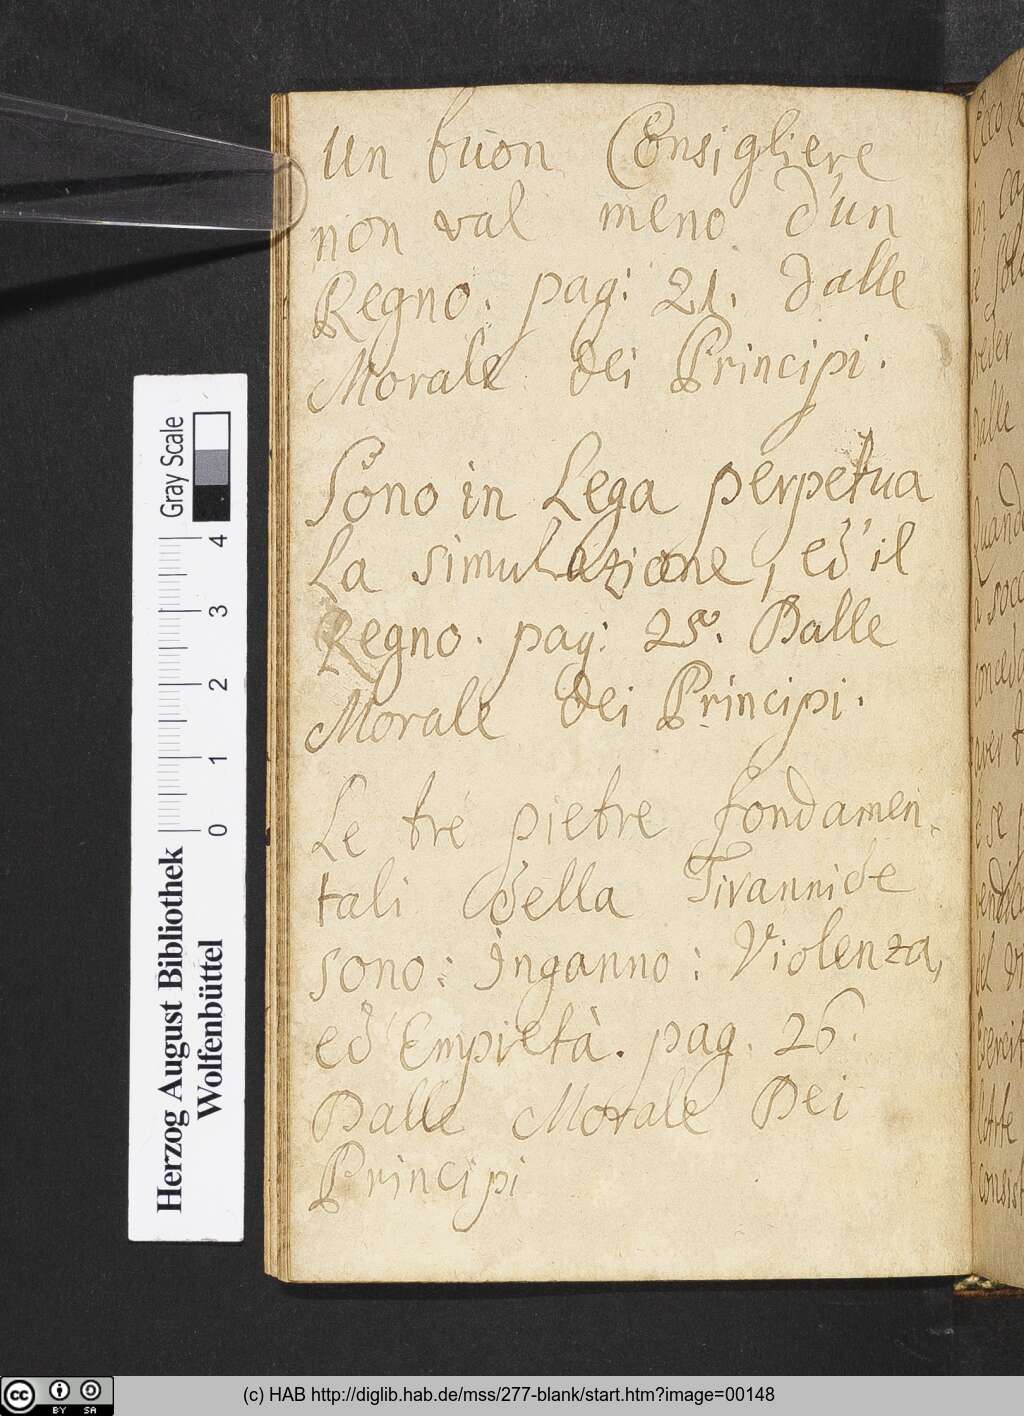 Un buon Consigliere
non val meno d'un
Regno. pag: 21. dalle
Morale dei Principi.
Sono in Lega perpetua
La simulazione, ed' il
Regno. pag: 25. Dalle
Morale dei Principi.
Le tre pietre fondamen-
tali della Tirannide
sono: Inganno: Violenza,
ed' Empietà. pag. 26.
Dalle Morale Dei
Principi
Gray Scale
0 1 2 3 4
Herzog August Bibliothek
Wolfenbüttel
(c) HAB http://diglib.hab.de/mss/277-blank/start.htm?image=00148
cc BY SA